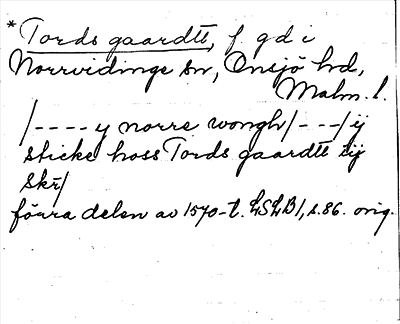 *Tords gaardtt, f. gd i
Norrvidinge sn, Onsjö hd,
Malm. l.
/---- y norre wongh/---/ij
sticke hoss Tords gaardtt iij
Skr/
förra delen av 1570-t. LSLB1, s. 86. orig.